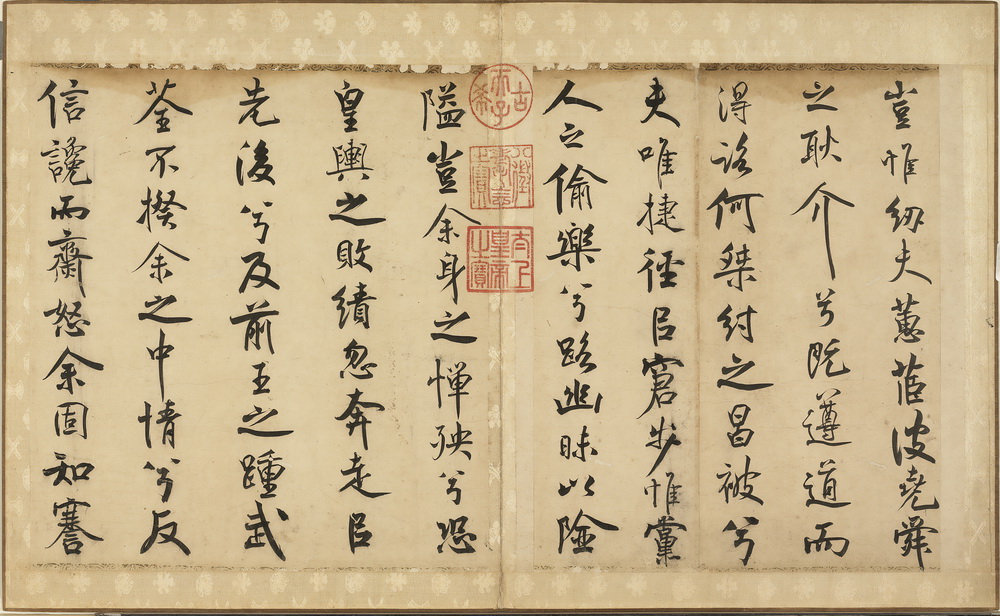 豈惟紉夫蕙茞彼堯舜
之耿介兮既遵道而
得路何桀紂之昌被兮
夫唯捷徑㠯窘步惟黨
人之偷樂兮路幽昧以險
古希天子
八徵耄念之寶
太上皇帝之寶
隘豈余身之憚殃兮恐
皇輿之敗績忽奔走㠯
先後兮及前王之踵武
荃不揆余之中情兮反
信讒而齌怒余固知謇